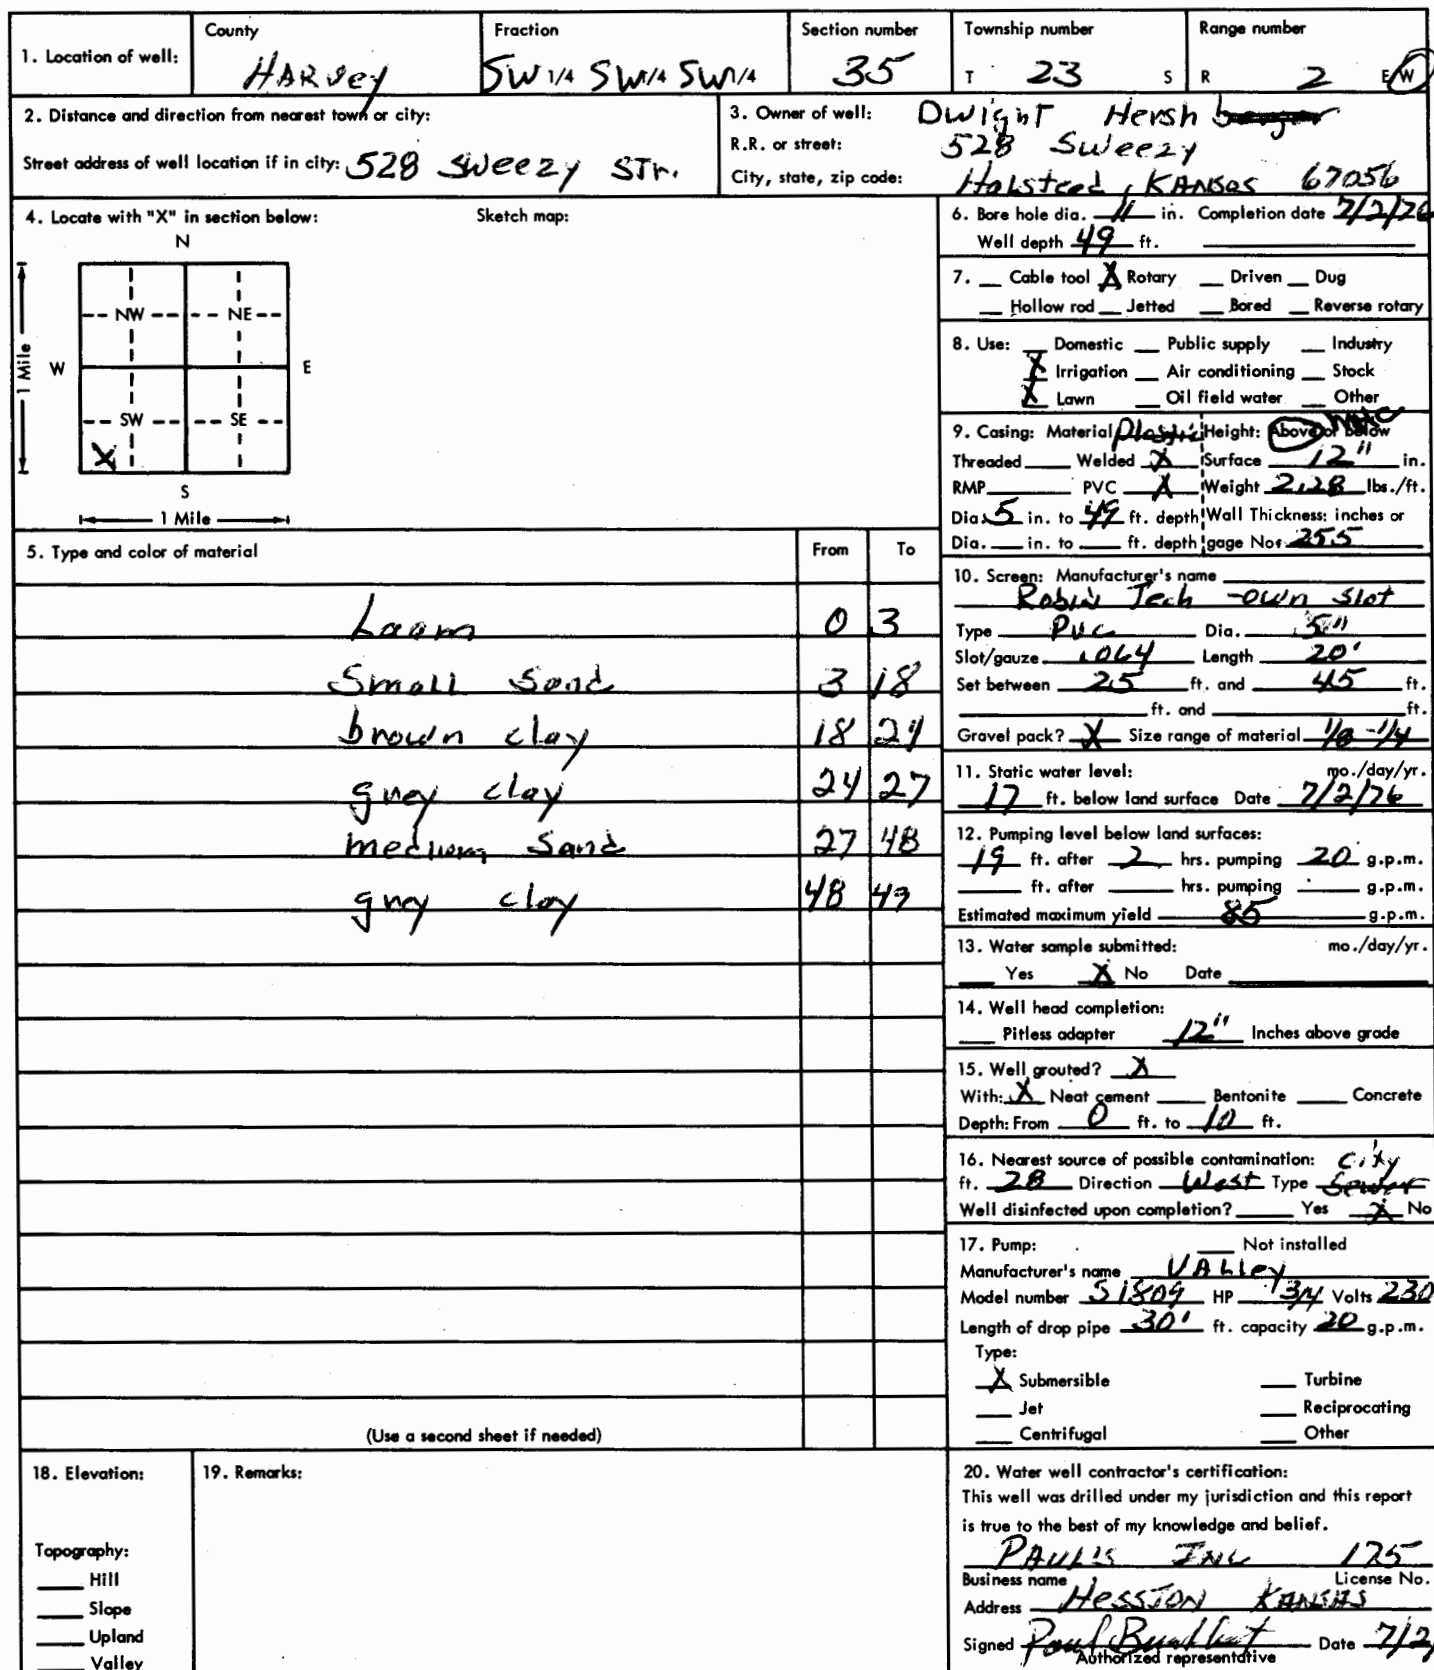 1. Location of well: County HARVey Fraction SW 1/4 SW 1/4 SW 1/4 Section number 35 Township number T 23 S Range number R 2 E W
2. Distance and direction from nearest town or city:
Street address of well location if in city: 528 Sweezy STr.
3. Owner of well: Dwight Hershberger
R.R. or street: 528 Sweezy
City, state, zip code: Halstead, KANSas 67056
4. Locate with "X" in section below: Sketch map:
N
NW NE
W E
1 Mile
SW SE
X
S
1 Mile
5. Type and color of material From To
Loam 0 3
Small Sand 3 18
brown clay 18 24
grey clay 24 27
medium Sand 27 48
grey clay 48 49
(Use a second sheet if needed)
6. Bore hole dia. 11 in. Completion date 7/2/76
Well depth 49 ft.
7. Cable tool X Rotary Driven Dug
Hollow rod Jetted Bored Reverse rotary
8. Use: Domestic Public supply Industry
X Irrigation Air conditioning Stock
X Lawn Oil field water Other
9. Casing: Material Plastic Height: Above or below
Threaded Welded X Surface 12" in.
RMP PVC X Weight 2.28 lbs./ft.
Dia. 5 in. to 49 ft. depth Wall Thickness: inches or
Dia. in. to ft. depth gage No. 255
10. Screen: Manufacturer's name
Robin Tech -own slot
Type PVC Dia. 5"
Slot/gauze .064 Length 20'
Set between 25 ft. and 45 ft.
ft. and ft.
Gravel pack? X Size range of material 1/8 - 1/4
11. Static water level: mo./day/yr.
17 ft. below land surface Date 7/2/76
12. Pumping level below land surfaces:
19 ft. after 2 hrs. pumping 20 g.p.m.
ft. after hrs. pumping g.p.m.
Estimated maximum yield 85 g.p.m.
13. Water sample submitted: mo./day/yr.
Yes X No Date
14. Well head completion:
Pitless adapter 12" Inches above grade
15. Well grouted? X
With: X Neat cement Bentonite Concrete
Depth: From 0 ft. to 10 ft.
16. Nearest source of possible contamination: City
ft. 28 Direction West Type Sewer
Well disinfected upon completion? Yes X No
17. Pump: Not installed
Manufacturer's name VALley
Model number S1809 HP 3/4 Volts 230
Length of drop pipe 30' ft. capacity 20 g.p.m.
Type:
X Submersible Turbine
Jet Reciprocating
Centrifugal Other
18. Elevation:
Topography:
Hill
Slope
Upland
Valley
19. Remarks:
20. Water well contractor's certification:
This well was drilled under my jurisdiction and this report
is true to the best of my knowledge and belief.
PAUL'S INC 175
Business name License No.
Address HESSTON KANSAS
Signed Paul Date 7/2/
Authorized representative